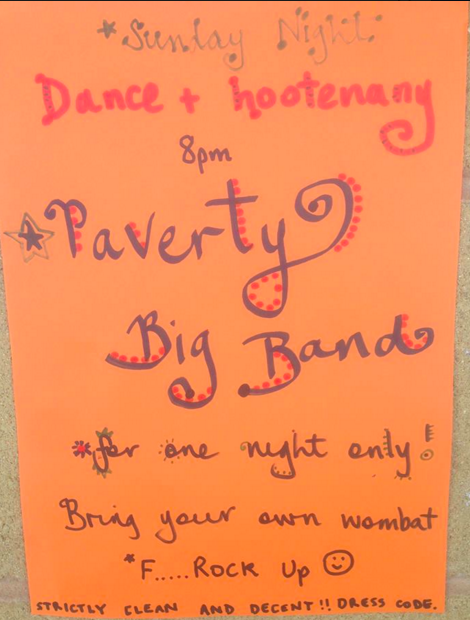 *Sunday Night
Dance + hootenany
8pm
Paverty
Big Band
*for one night only!
Bring your own wombat
*F.....Rock Up ☺
STRICTLY CLEAN AND DECENT!! DRESS CODE.